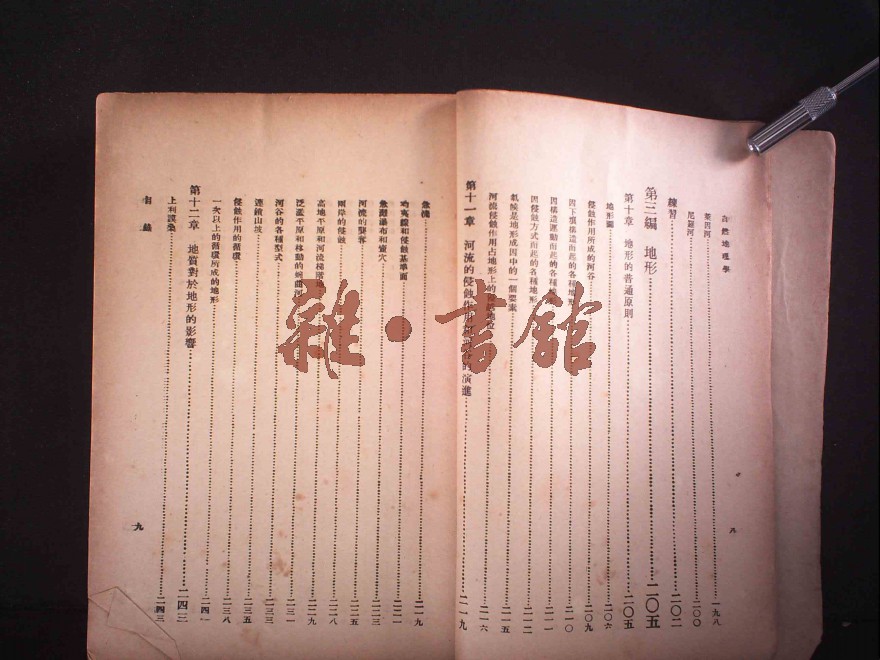 自然地理學
萊因河 一九八
尼羅河 二〇〇
練習 二〇二
第三編 地形 二〇五
第十章 地形的普通原則 二〇五
地形圖 二〇六
侵蝕作用所成的河谷 二〇九
因下壤構造而起的各種地形 二一〇
因構造運動而起的各種 二一一
因侵蝕方式而起的各種地形 二一二
氣候是地形成因中的一個要素 二一五
河流侵蝕作用占地形上的 二一六
第十一章 河流的侵蝕作用 的演進 二一九
八
急流 二一九
均夷線和侵蝕基準面 二二一
急灘瀑布和壺穴 二二三
河流的襲奪 二二五
兩岸的侵蝕 二二八
高地平原和河流梯階地 二二九
泛濫平原和移動的蜿曲河 二三一
河谷的各種型式 二三三
連鎖山坡 二三五
侵蝕作用的循環 二三八
一次以上的循環所成的地形 二四一
第十二章 地質對於地形的影響 二四三
上利談桑 二四三
目錄
九
雜·書館